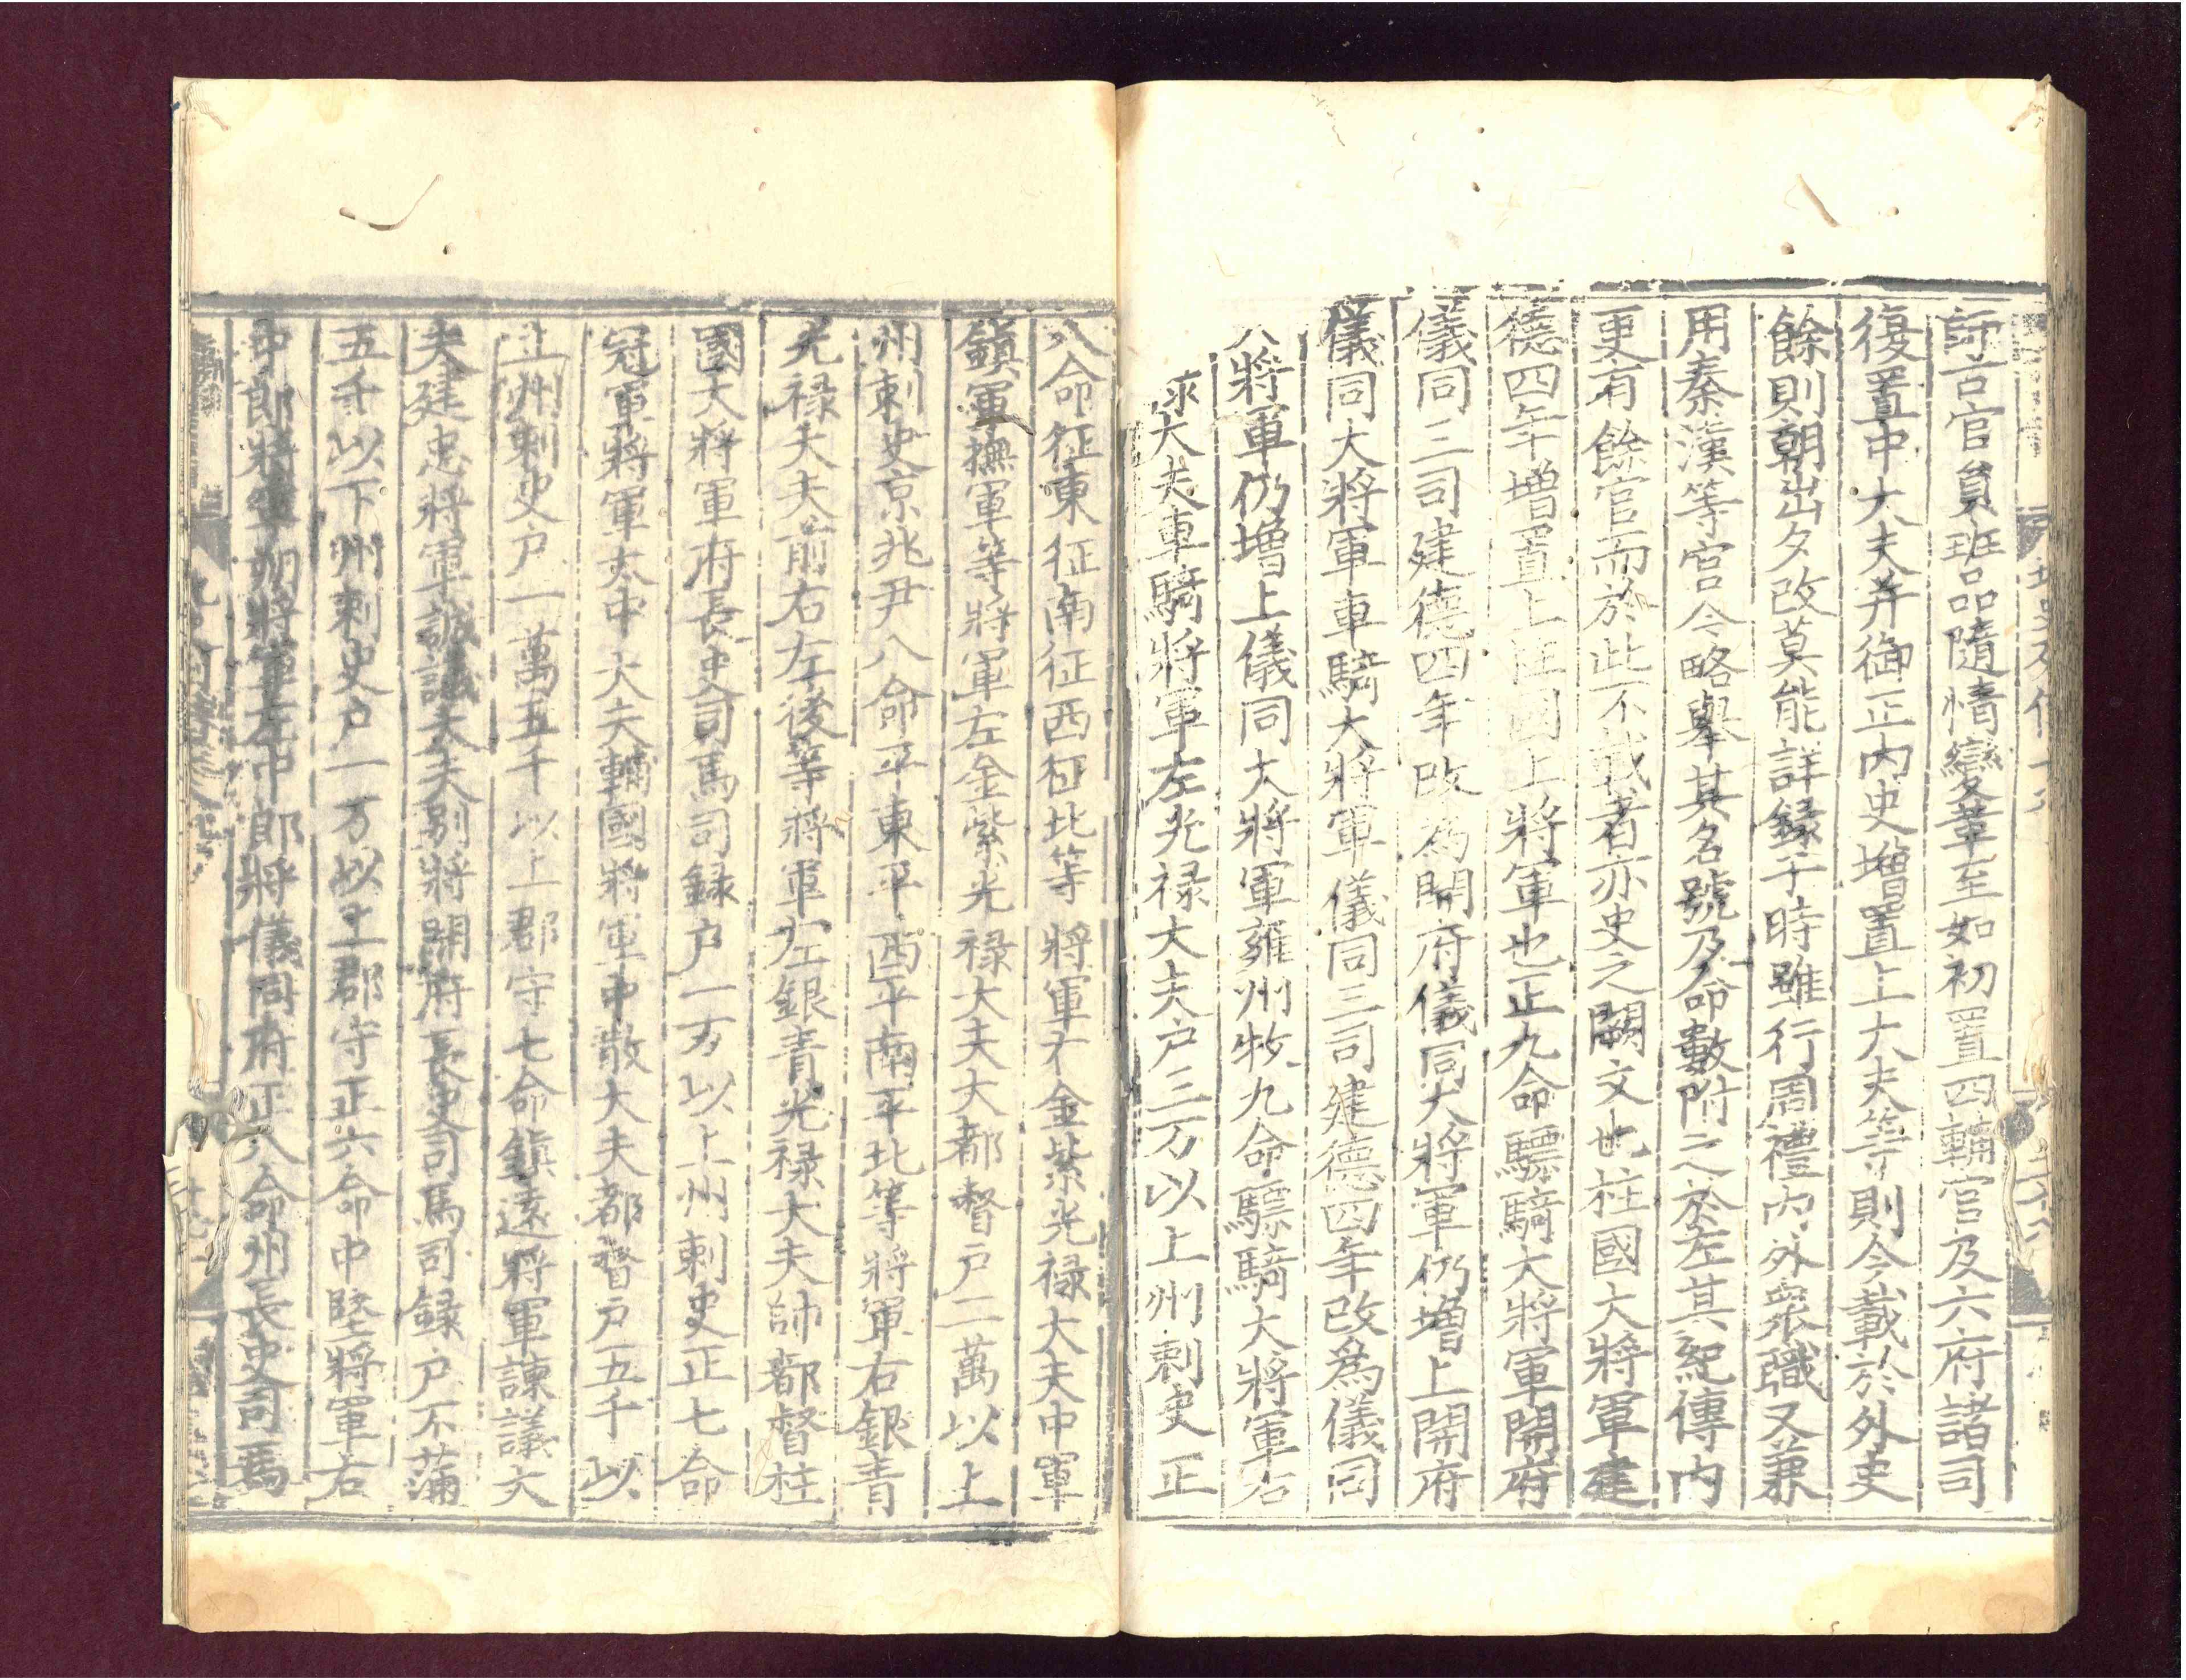 師古官員班品隨情變革至如初置四輔官及六府諸司
復置中大夫并御正內史增置上大夫等則今載於外史
餘則朝出夕改莫能詳録于時雖行周禮內外衆職又兼
用秦漢等官今略舉其名號及命數附之於左其紀傳內
更有餘官而於此不載者亦史之闕文也柱國大將軍建
德四年增置上柱國上將軍也正九命驃騎大將軍開府
儀同三司建德四年改為開府儀同大將軍仍增上開府
儀同大將軍車騎大將軍儀同三司建德四年改為儀同
大將軍仍增上儀同大將軍雍州牧九命驃騎大將軍右
大夫車騎將軍左光禄大夫户三万以上州刺史正
八命征東征南征西征北等將軍右金紫光禄大夫中軍
鎮軍撫軍等將軍左金紫光禄大夫大都督户二萬以上
州刺史京兆尹八命平東平西平南平北等將軍右銀青
光禄大夫前右左後等將軍左銀青光禄大夫帥都督柱
國大將軍府長史司馬司録户一万以上州刺史正七命
冠軍將軍太中大夫輔國將軍中散大夫都督户五千以
上州刺史户一萬五千以上郡守七命鎮遠將軍諫議大
夫建忠將軍誠議大夫別將開府長史司馬司録户不滿
五千以下州刺史户一万以上郡守正六命中堅將軍右
中郎將寧朔將軍左中郎將儀同府正八命州長史司馬